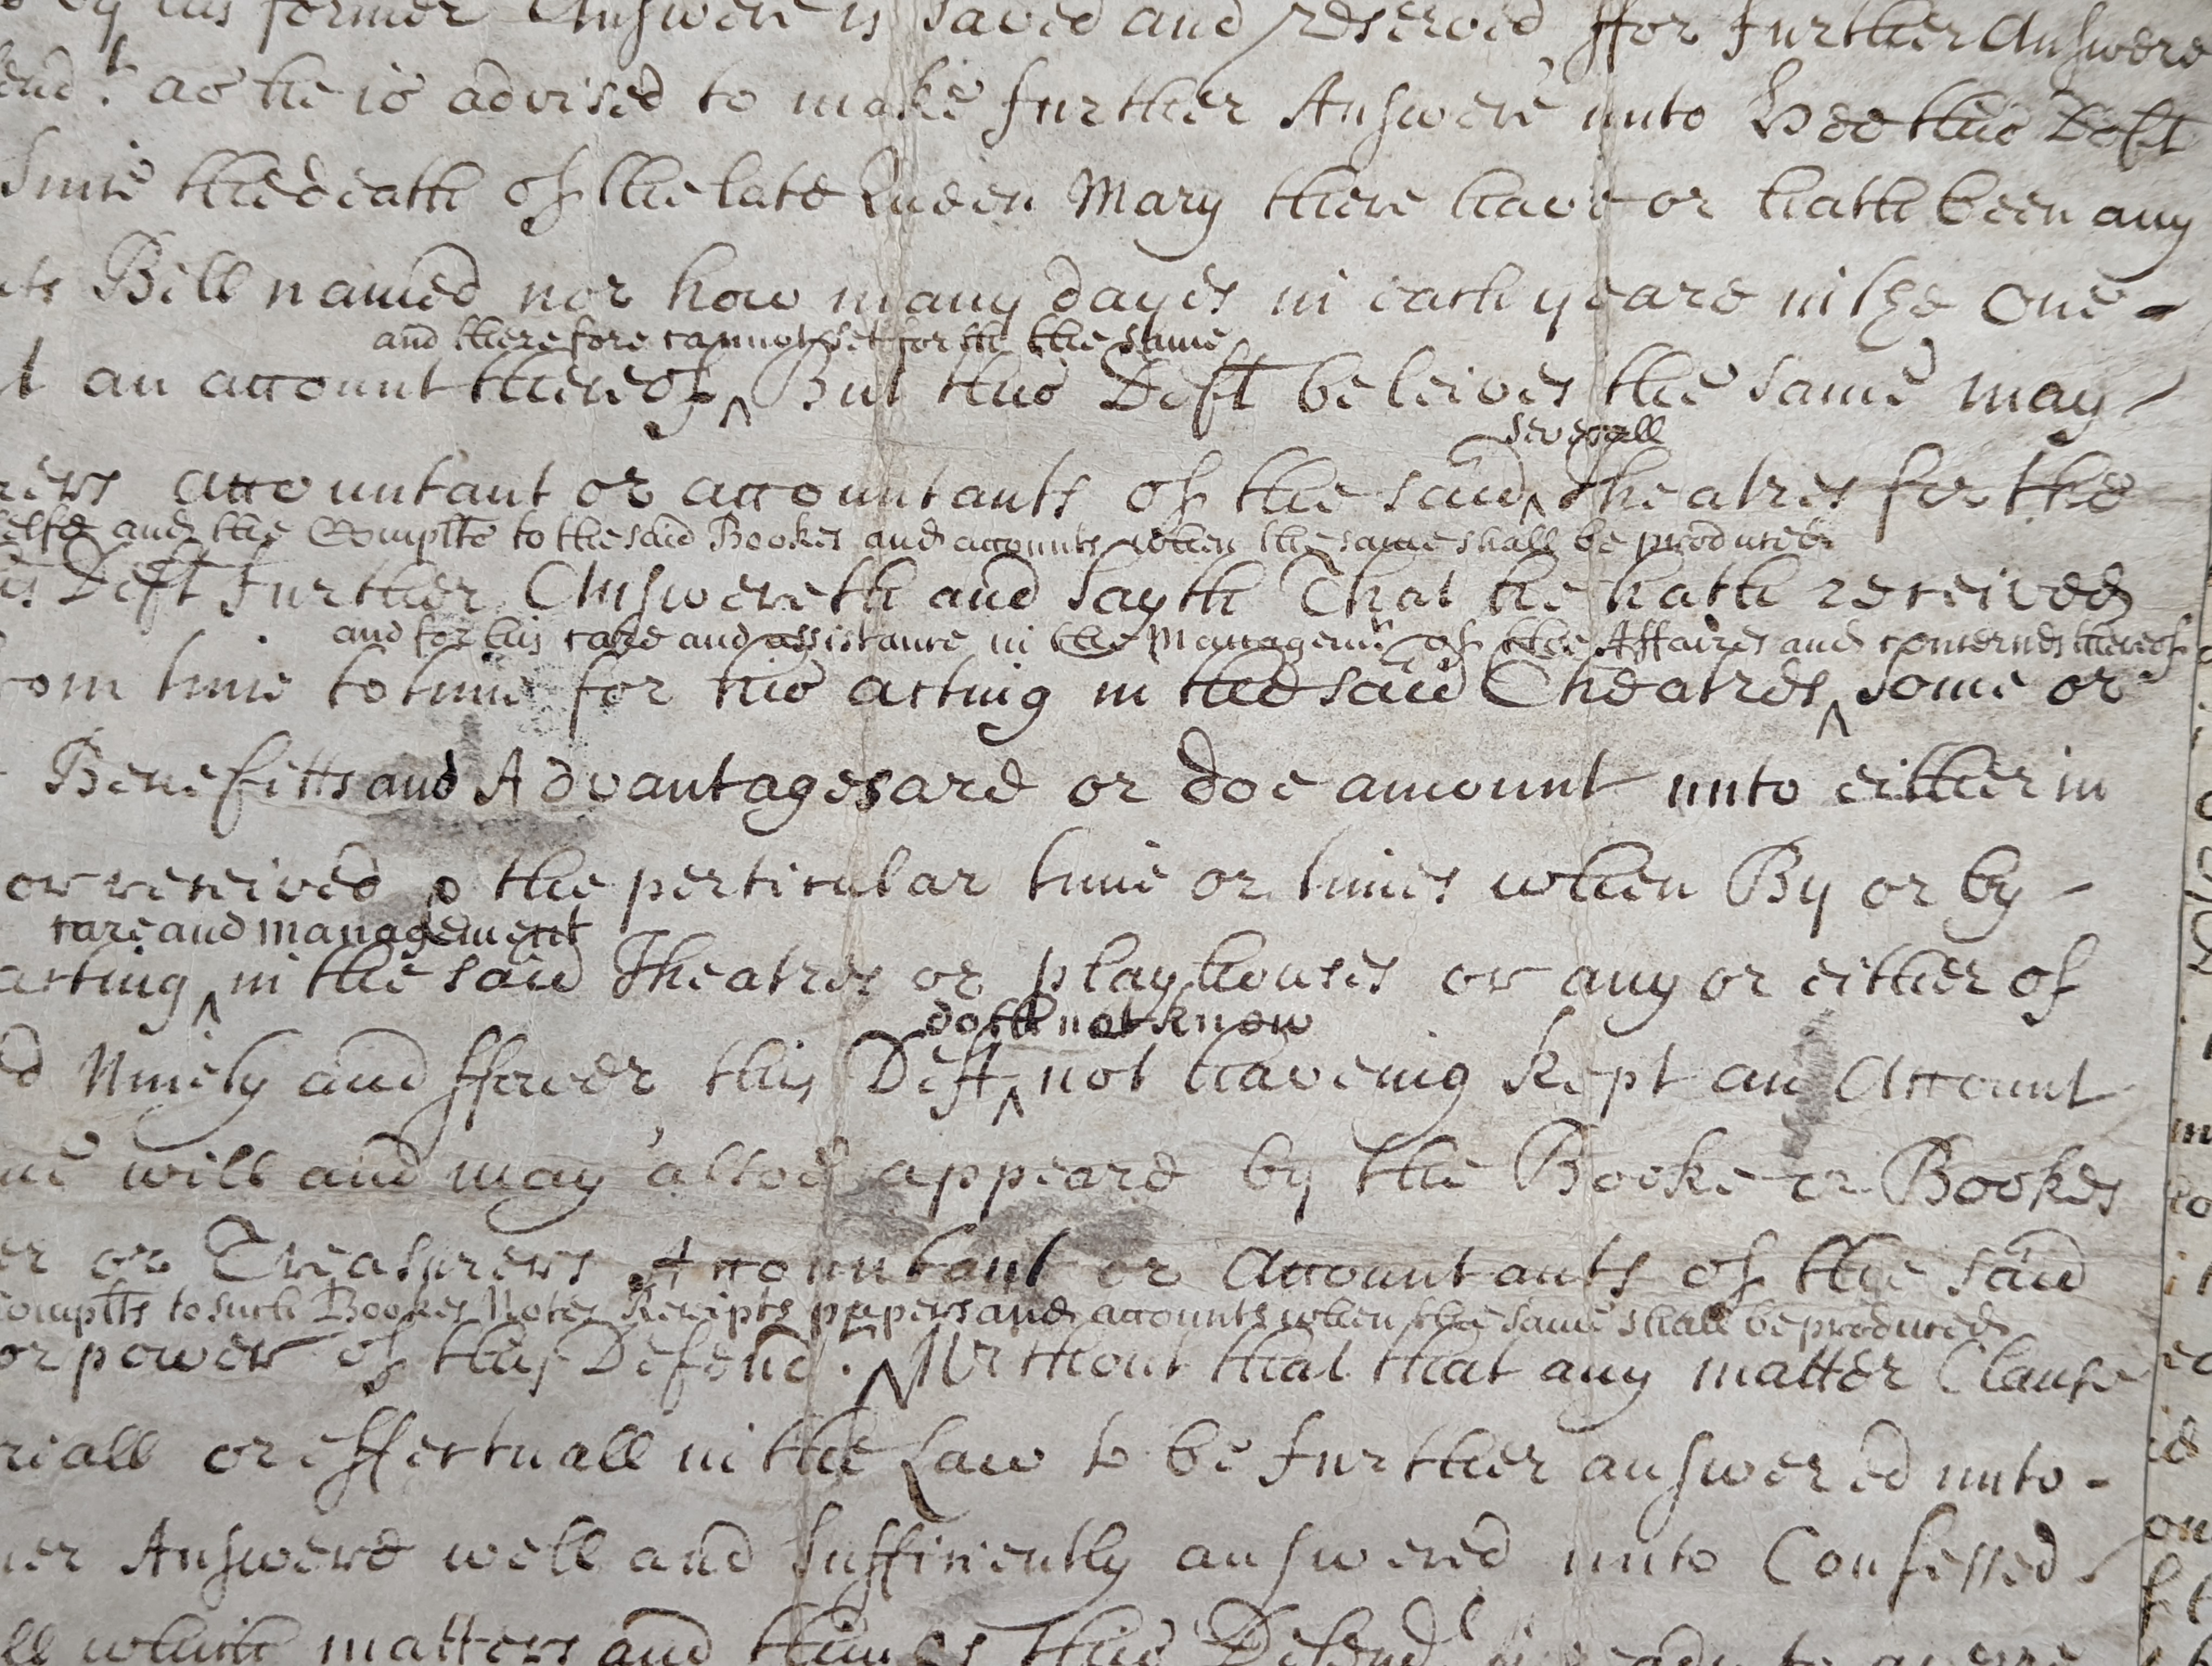 by his former Answere is saved and reserved ffor further Answere
end.t as he is advised to make further Answere unto Hee this Deft
Since the death of the late Queen Mary there have or hath been any
ts Bill named nor how many dayes in each yeare in the one -
and therefore cannot set forth the same
t an account thereof ^ But this Deft beleives the same may -
severall
rers accountant or accountants of the said ^ Theatres for the
selfe and the Complts to the said Bookes and accounts when the same shall be produced
is Deft further Answereth and sayth That he hath received
and for his care and assistance in the Managem.t of the Affaires and concernes thereof
from time to time for his acting in the said Theatres ^ some or
Benefitts and Advantages are or doe amount unto either in
or received the perticular time or times when By or by -
care and management
acting ^ in the said Theatres or playhouses or any or either of
doth not know
ed Ninety and ffower this Deft ^ not haveing kept an Account
me will and may alsoe appeare by the Booke or Bookes
er or Treasurers Accountant or Accountants of the said
Complts to such Bookes Notes Receipts papers and accounts when the same shall be produced
or power of this Defend.t ^ Without that that any matter Clause
riall or effectuall in the Law to be further answered unto -
her Answere well and sufficiently answered unto Confessed -
ll which matters and things this Defend.t is ready to averre